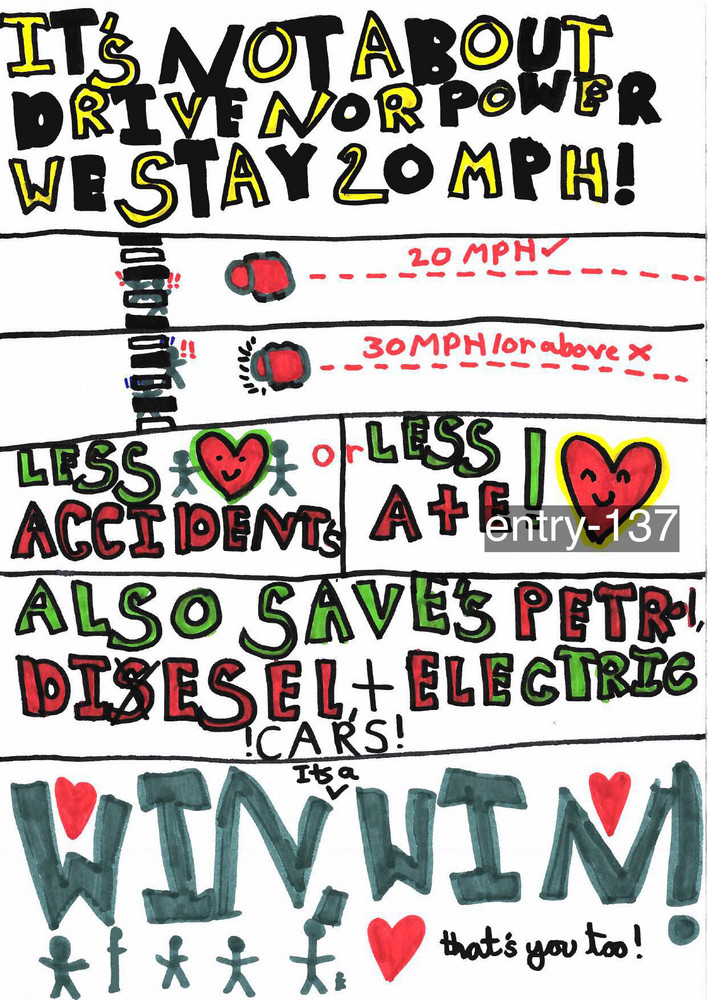 IT'S NOT ABOUT
DRIVE NOR POWER
WE STAY 20 MPH!
!!
!!
20 MPH✓
!!
30MPH/or above x
LESS
ACCIDENTs
or
LESS
A+E!
entry-137
ALSO SAVE'S PETRol,
DISESEL,+ ELECTRIC
!CARS!
Its a
WIN, WIN!
that's you too!